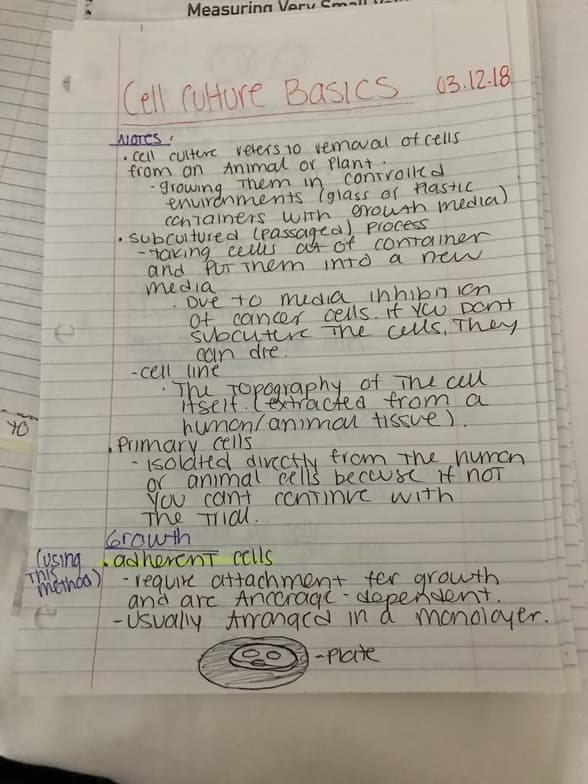 Measuring Very Small
Cell Culture Basics 03.12.18
NOTES:
• cell culture refers to removal of cells
from an Animal or Plant.
- growing Them in controlled
environments (glass or Plastic
containers with growth media)
• subcultured (passaged) process
- taking cells out of container
and put Them into a new
media
• Due to media inhibition
of cancer cells. if you Dont
subcuture The cells, They
can die.
- cell line
• The Topography of The cell
itself. (extracted from a
human/animal tissue).
• Primary cells
- isolated directly from The human
or animal cells because if not
you cant continue with
The Trial.
Growth
(using This method) • adherent cells
- require attachment for growth
and are Ancorage - dependent.
- Usually Arranged in a monolayer.
- Plate